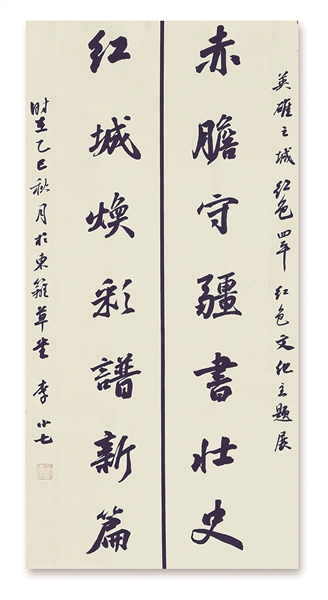 英雄之城 红色四平 红色文化主题展
赤膽守疆書壮史
红城焕彩譜新篇
时在乙巳秋月於東籬草堂 李小七